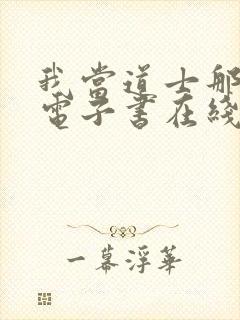 我當道士那
電子書在綫
一幕浮華